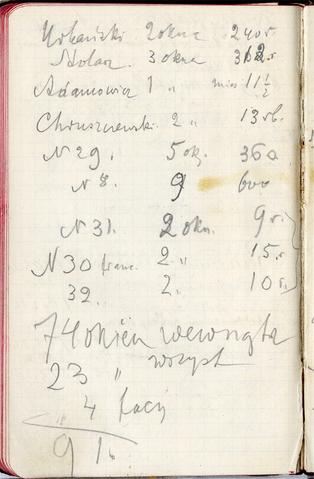 Urbański 2 okna 240 r.
Stolarz. 3 okna 312. r
Adamowicz 1 „ mies 11 ½
Chruszczewski 2 „ 13 rb.
N 29. 5 ok. 360.
N 8. 9 600
N 31. 2 okn. 9 r.
N 30 franc. 2 „ 15. r
32. 2. 10 r.
74 okien wewnątrz
23 „
4
91